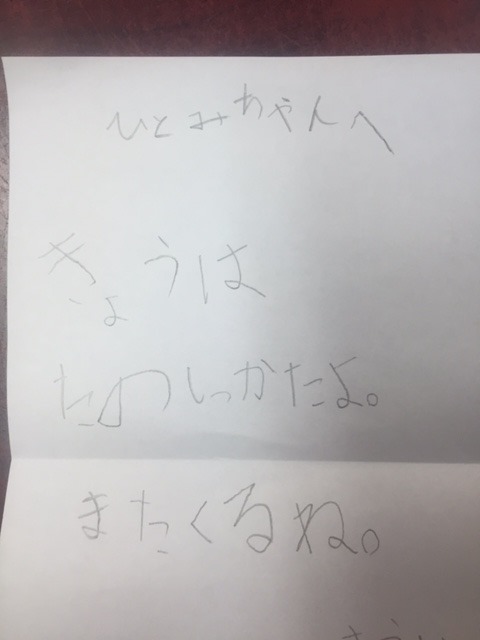 ひとみちゃんへ
きょうは
たのしっかたよ。
またくるね。